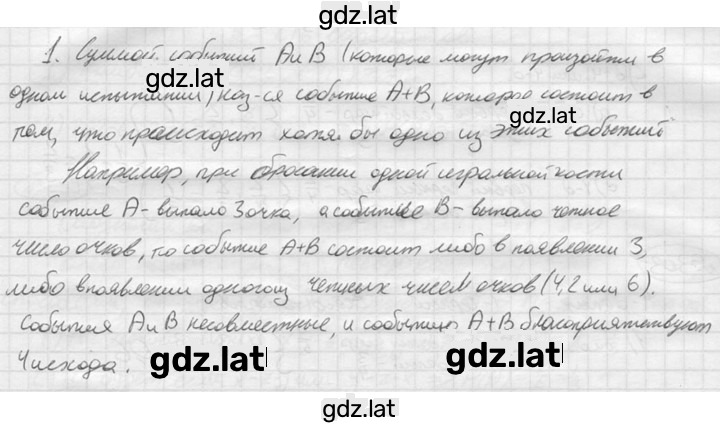 gdz.lat
1. Суммой событий А и В (которые могут произойти в
gdz.lat
одном испытании) наз-ся событие А+В, которое состоит в
gdz.lat
том, что происходит хотя бы одно из этих событий
Например, при бросании одной игральной кости
событие А - выпало 3 очка, а событие В - выпало четное
число очков, то событие А+В состоит либо в появлении 3,
либо в появлении одного из четных чисел очков (4, 2 или 6).
События А и В несовместные, и событию А+В благоприятствуют
4 исхода.
gdz.lat gdz.lat
gdz.lat